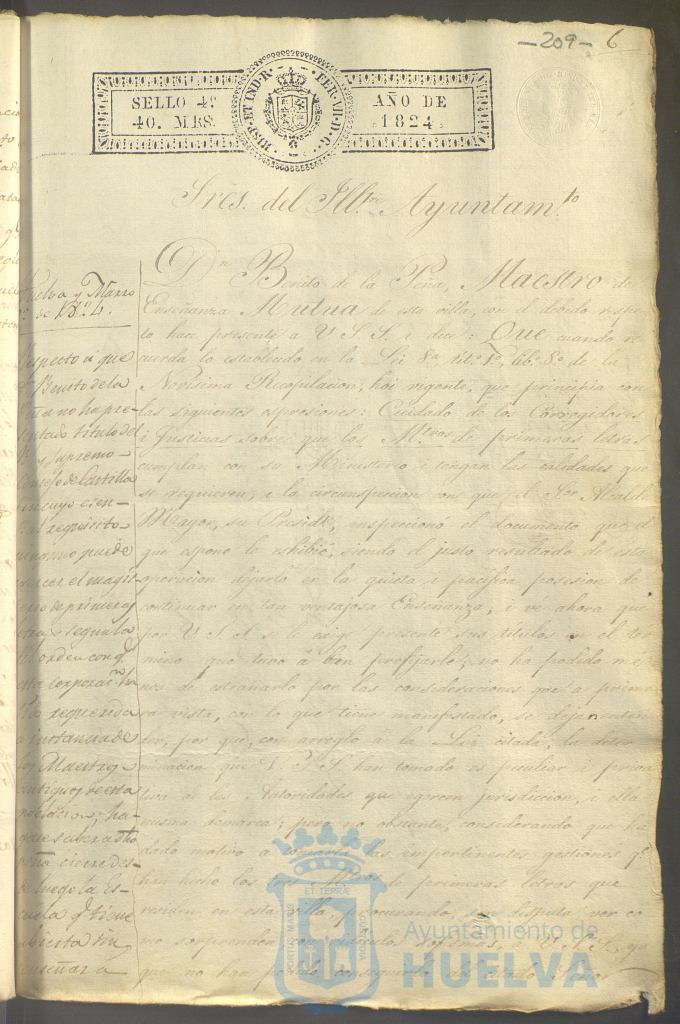 -209- 6
SELLO 4º
40. MRS.
HISP. ET IND. R. FER. VII. D. G.
AÑO DE
1824
Sres. del Ill.tre Ayuntam.to
D.n Benito de la Peña, Maestro de
Enseñanza Mutua de esta villa, con el debido respe-
to hace presente a V.S.S. i dice: Que cuando re-
cuerda lo establecido en la Lei 8.a, tit.o 1.o, lib.o 8.o de la
Novísima Recopilacion, hoi vigente, que principia con
las siguientes espresiones: Cuidado de los Corregidores
i Justicias sobre que los M.tros de primeras letras
cumplan con su Ministerio i tengan las calidades que
se requieren, i la circunspeccion con que el Sor. Alcalde
Mayor, su Presid.te, inspeccionó el documento que el
que espone le exhibió, siendo el justo resultado de esta
operacion dejarlo en la quieta i pacifica posesion de
continuar en tan ventajosa Enseñanza, i ve ahora que
por V.S.S. se le exige presente sus títulos en el ter-
mino que tuvo á bien prefijarle; no ha podido me-
nos de estrañarlo por las consideraciones que a prime-
ra vista, con lo que tiene manifestado, se dejan enten-
der, por que, con arreglo á la Lei citada, la deter-
minacion que V.S.S. han tomado es peculiar i priva-
tiva de las Autoridades que egercen jurisdiccion, i ella
misma demarca; pero no obstante, considerando que ha
dado motivo a las impertinentes gestiones q.e
han hecho los M.tros de primeras letras que
residen en esta villa, procurando, sin disputa, ver co-
mo sorprenden con ridiculos sofismas, á V.S.S., ya
que no han podido conseguirlo del citado Señor
Huelva y Marzo
de 1824.
Respecto á que
Benito de la
Peña no ha pre-
sentado titulo del
Supremo
Consejo de Castilla
sin cuyo esen-
cial requisito
ninguno puede
egercer el magis-
terio de primeras
letras segun la
R.l orden con q.e
esta corporac.on ha
sido requerida
á instancia de
los Maestros
antiguos de esta
poblacion; há-
gase saber a dho
Peña cierre des-
de luego la Es-
cuela q.e tiene
abierta sin
enseñar a
PORTUS MARIS ET TERRAE CUSTODIA
Ayuntamiento de
HUELVA